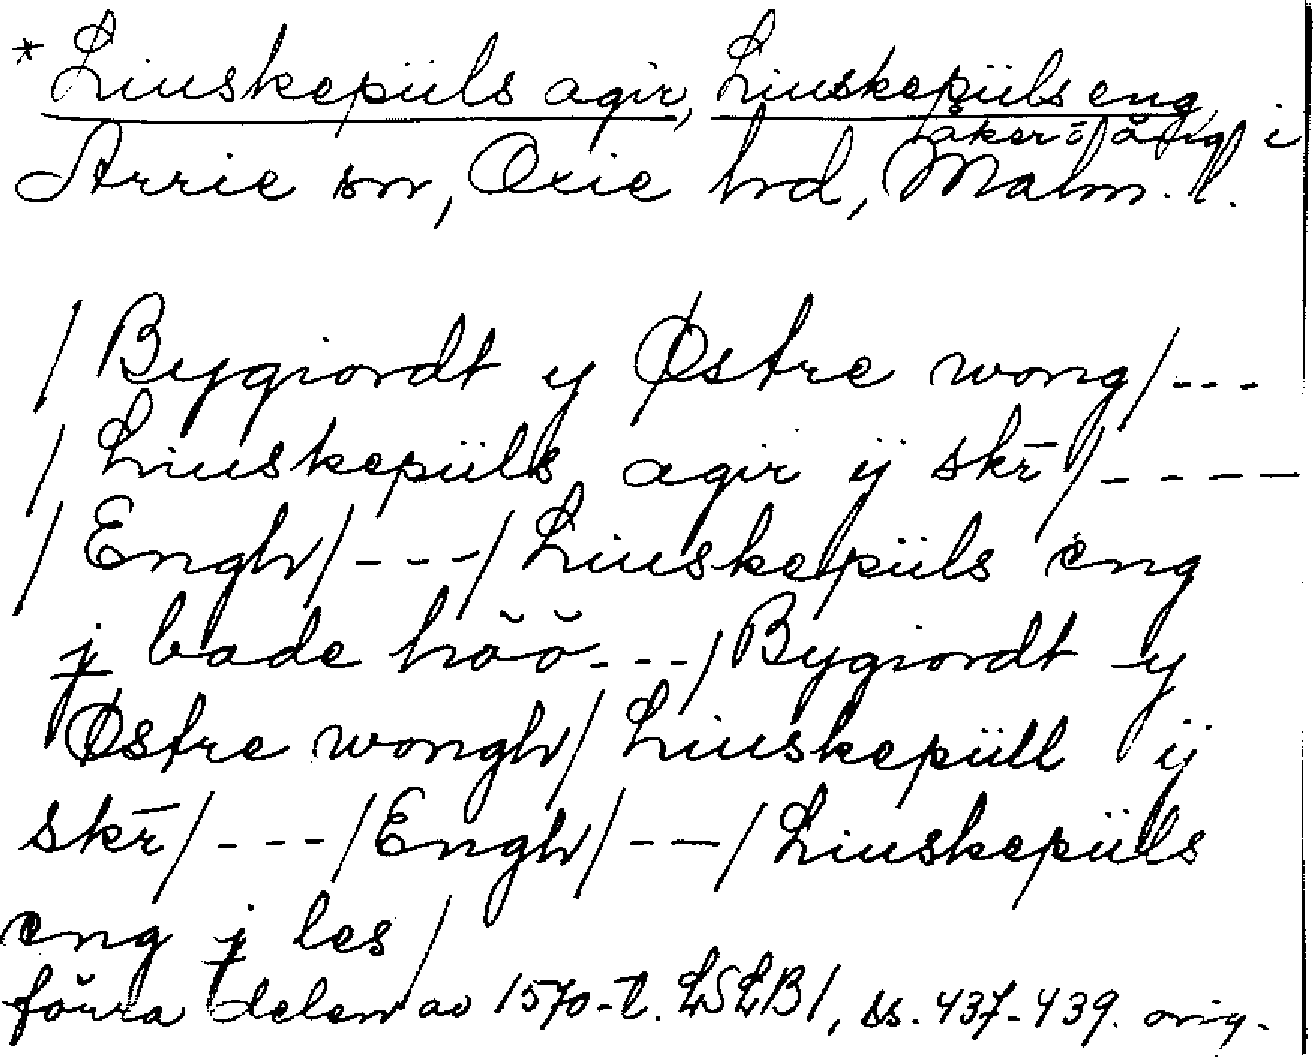 *Liuskepüls agir, Liuskepüls eng,
åker o. äng i
Arrie sn, Oxie hd, Malm. l.
/ Bygiordt y Østre wong / ---
/ Liuskepüls agir ÿ skr̄ / ----
/ Engh / --- / Liuskepüls eng
j bade höö --- / Bygiordt y
Østre wongh / Liuskepüll ÿ
skr̄ / --- / Engh / --- / Liuskepüls
eng j les /
förra delen av 1570-t. LSLB1, ss. 437-439. orig.